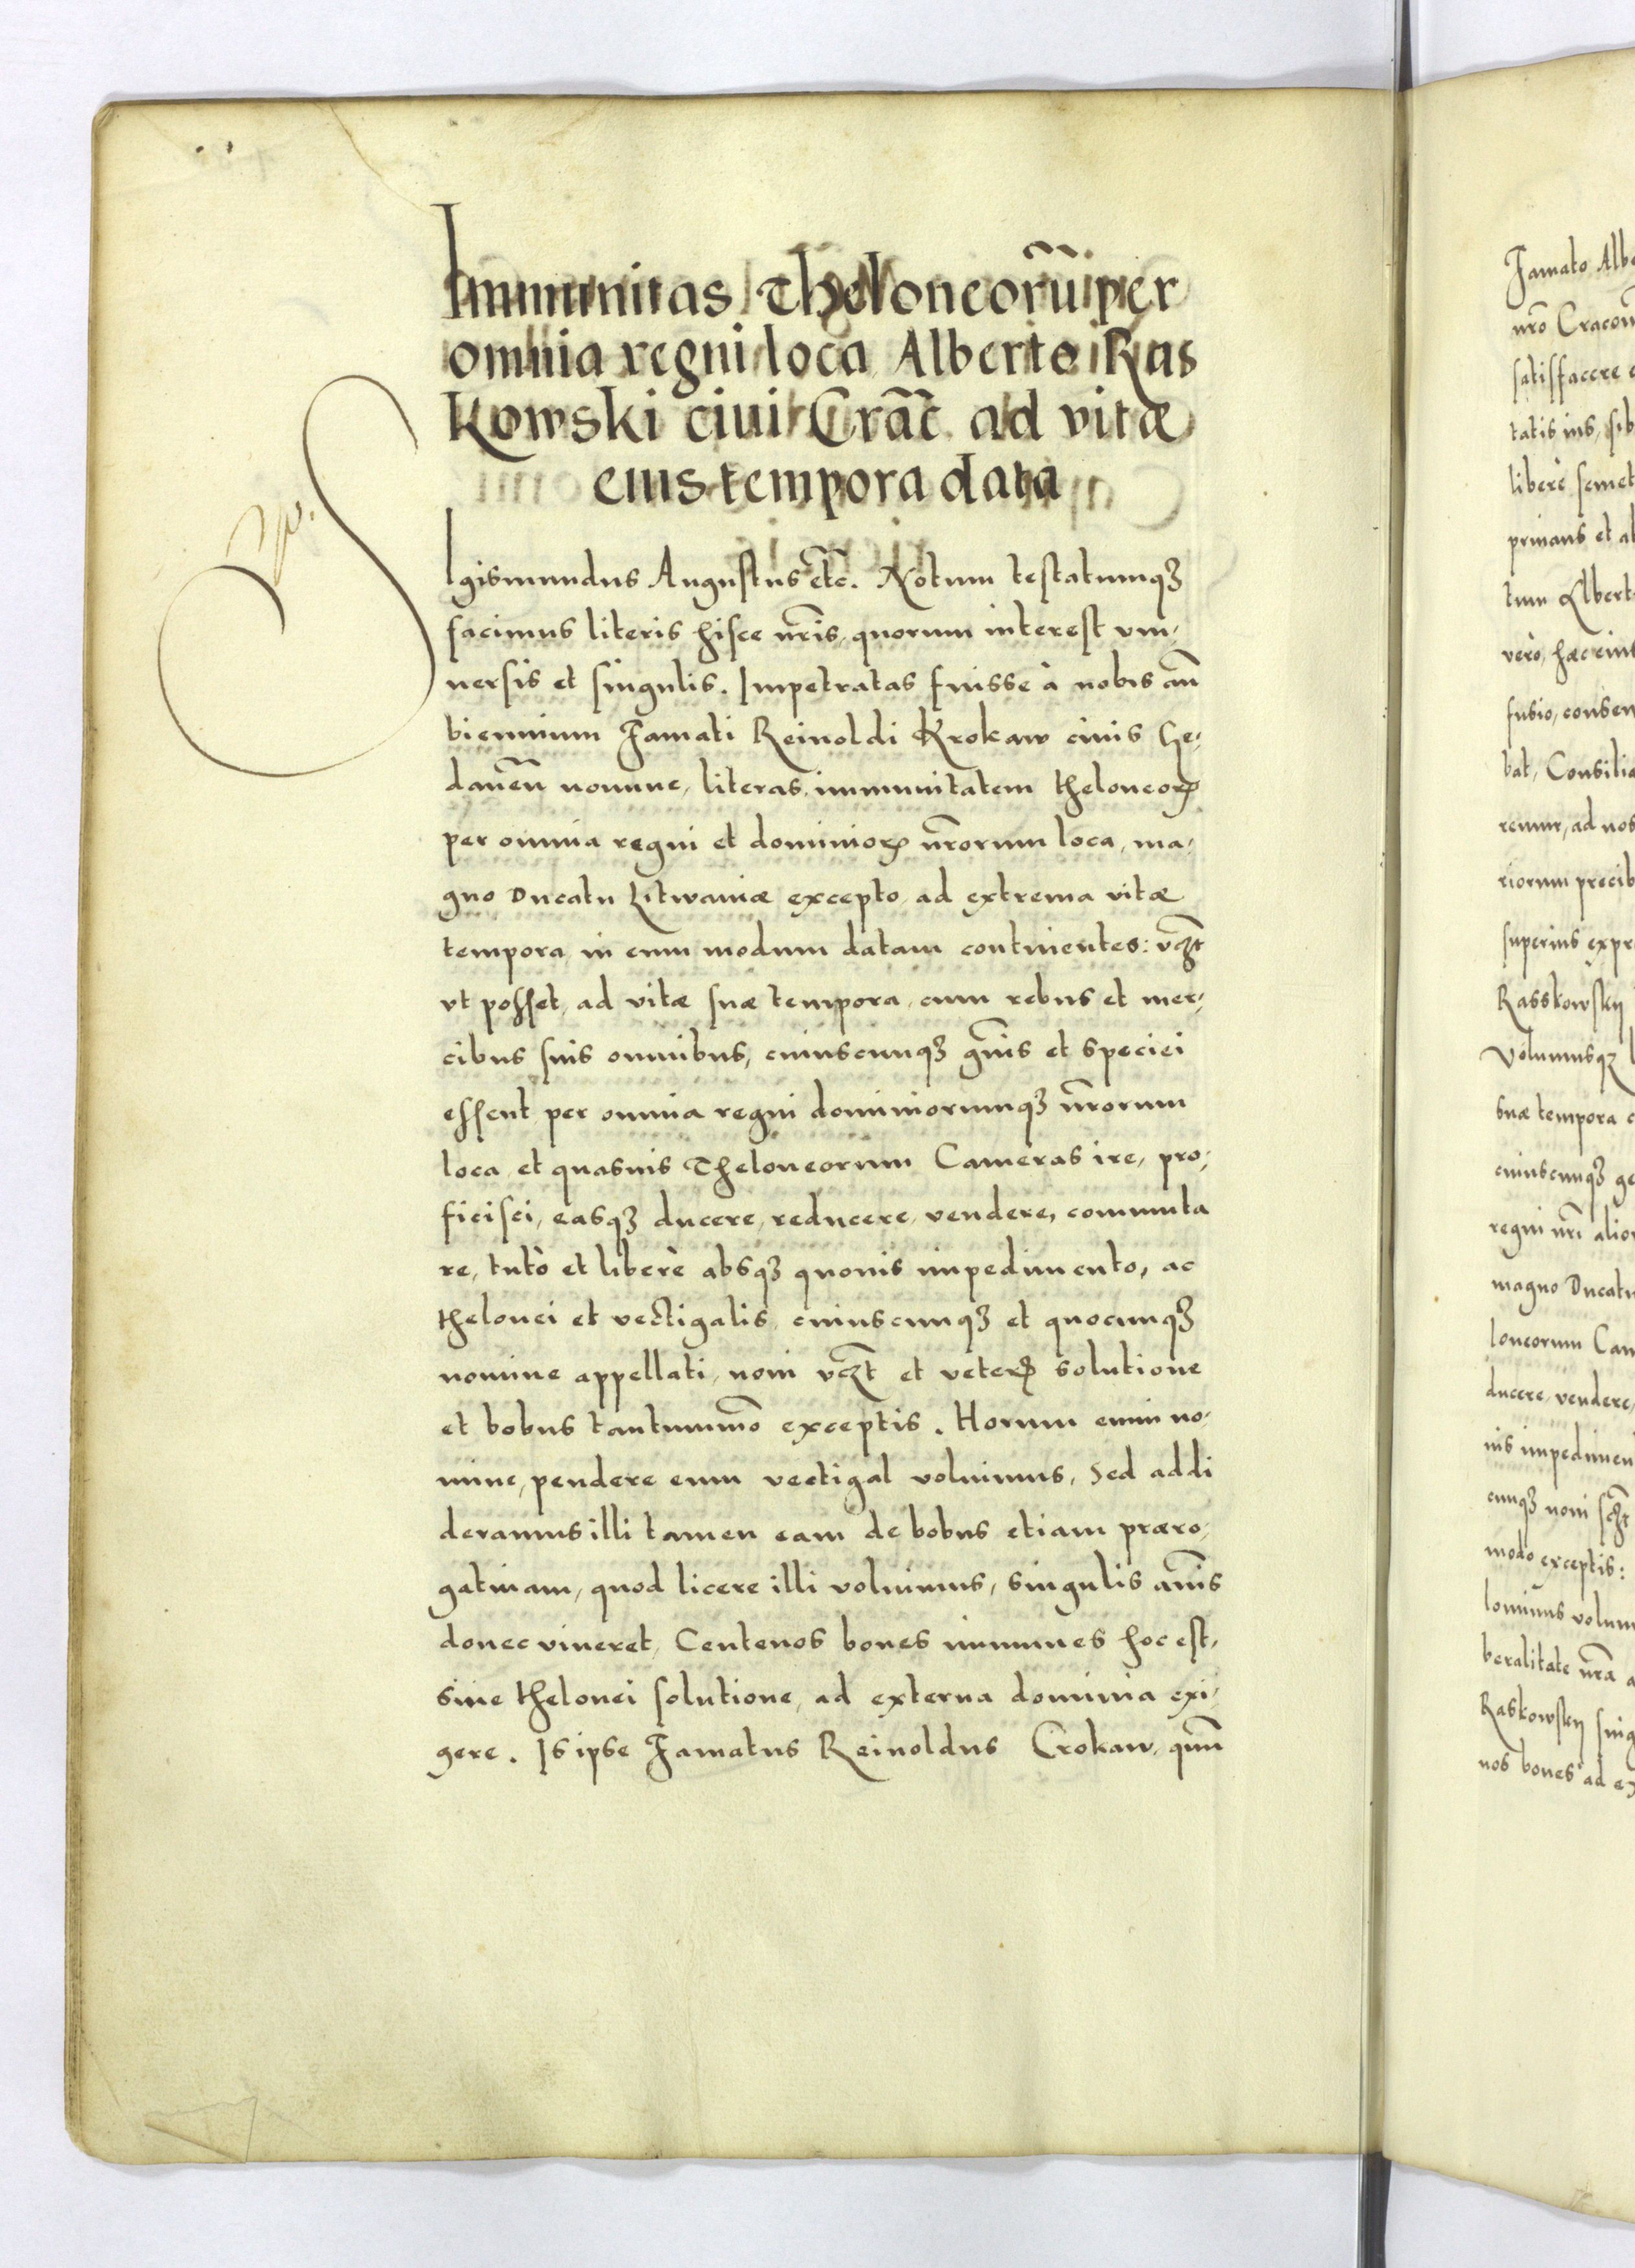 Immunitas Theloneorũ per
omnia regni loca Alberto Ras
kowski ciui Crac̃ ad vitæ
eius tempora data
Sigismundus Augustus etc̃. Notum testatumqꝫ
facimus literis hisce nr̃is, quorum interest vni,
uersis et singulis. Impetratas fuisse à nobis añ
biennium Famati Reinoldi Krokaw ciuis Ge,
daneñ nomine, literas, immunitatem theloneoꝝ
per omnia regni et dominioꝝ nr̃orum loca, ma,
gno Ducatu Litwaniæ excepto, ad extrema vitæ
tempora, in eum modum datam continentes: vcꝫt
vt posset, ad vitæ suæ tempora, cum rebus et mer,
cibus suis omnibus, cuiuscunqꝫ gñis et speciei
essent per omnia regni dominiorumqꝫ nr̃orum
loca et quasuis Theloneorum Cameras ire, pro,
ficisci, easqꝫ ducere, reducere, vendere, commuta
re, tutò et liberè absqꝫ quouis impedimento, ac
thelonei et vectigalis, cuiuscunqꝫ et quocunqꝫ
nomine appellati, noui vcꝫt et veteꝝ solutione
et bobus tantummõ exceptis. Horum enim no,
mine, pendere eum vectigal voluimus, Sed addi
deramus illi tamen eam de bobus etiam præro,
gatiuam, quod licere illi voluimus, singulis añis
donec viueret, Centenos boues immunes hoc est,
sine thelonei solutione, ad externa dominia exi,
gere. Is ipse Famatus Reinoldus Crokaw, quũ
Famato Alb
nr̃o Cracou
satisfacere
tatis ius, sib
liberè semet
priuans et
tum Albert
verò, hæc eius
fusio, consen
bat, Consilia
remur, ad nos
riorum precib
superius expr
Rasskowskij
Volumusqꝫ
suæ tempora
cuiuscunqꝫ ge
regni nr̃i alio
magno Ducatu
loneorum Cam
ducere, vendere,
uis impedimen
cunqꝫ noui scꝫt
modo exceptis:
lonimus volum
beralitate nr̃a a
Raskowskij sing
nos boues ad ex